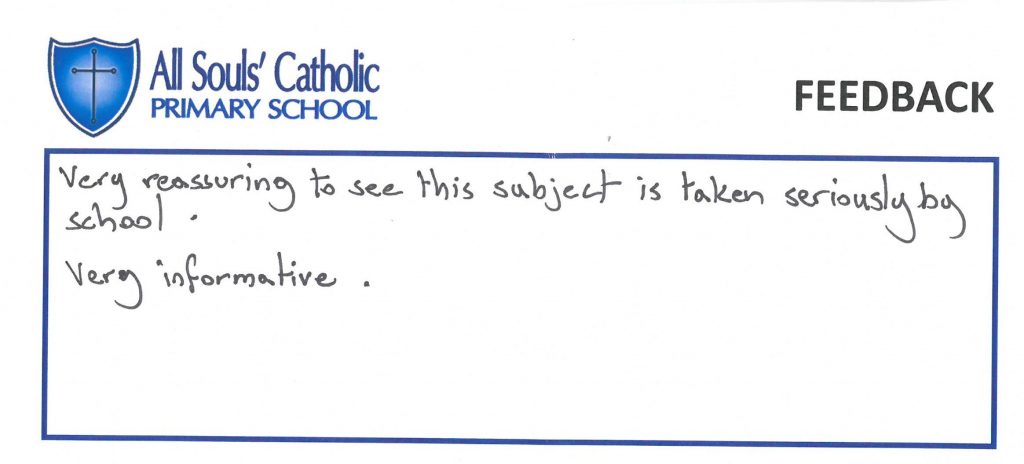 All Souls' Catholic
PRIMARY SCHOOL
FEEDBACK
Very reassuring to see this subject is taken seriously by
school.
Very informative.